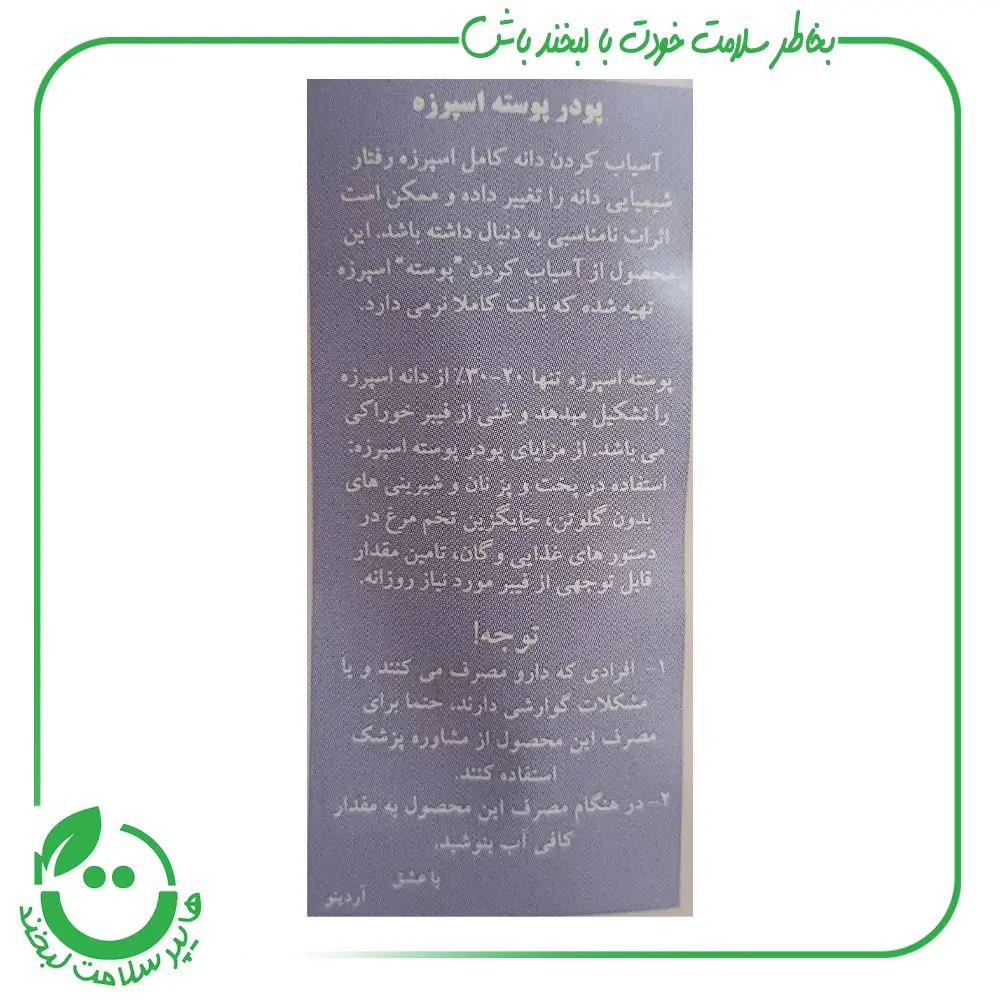 بخاطر سلامت خودت با لبخند باش
پودر پوسته اسپرزه
آسیاب کردن دانه کامل اسپرزه رفتار
شیمیایی دانه را تغییر داده و ممکن است
اثرات نامناسبی به دنبال داشته باشد. این
محصول از آسیاب کردن "پوسته" اسپرزه
تهیه شده که بافت کاملا نرمی دارد.
پوسته اسپرزه تنها ۲۰-۳۰٪ از دانه اسپرزه
را تشکیل میدهد و غنی از فیبر خوراکی
می باشد. از مزایای پودر پوسته اسپرزه:
استفاده در پخت و پز نان و شیرینی های
بدون گلوتن، جایگزین تخم مرغ در
دستور های غذایی وگان، تامین مقدار
قابل توجهی از فیبر مورد نیاز روزانه.
توجه!
۱- افرادی که دارو مصرف می کنند و یا
مشکلات گوارشی دارند، حتما برای
مصرف این محصول از مشاوره پزشک
استفاده کنند.
۲- در هنگام مصرف این محصول به مقدار
کافی آب بنوشید.
با عشق
آردینو
هایپر سلامت لبخند